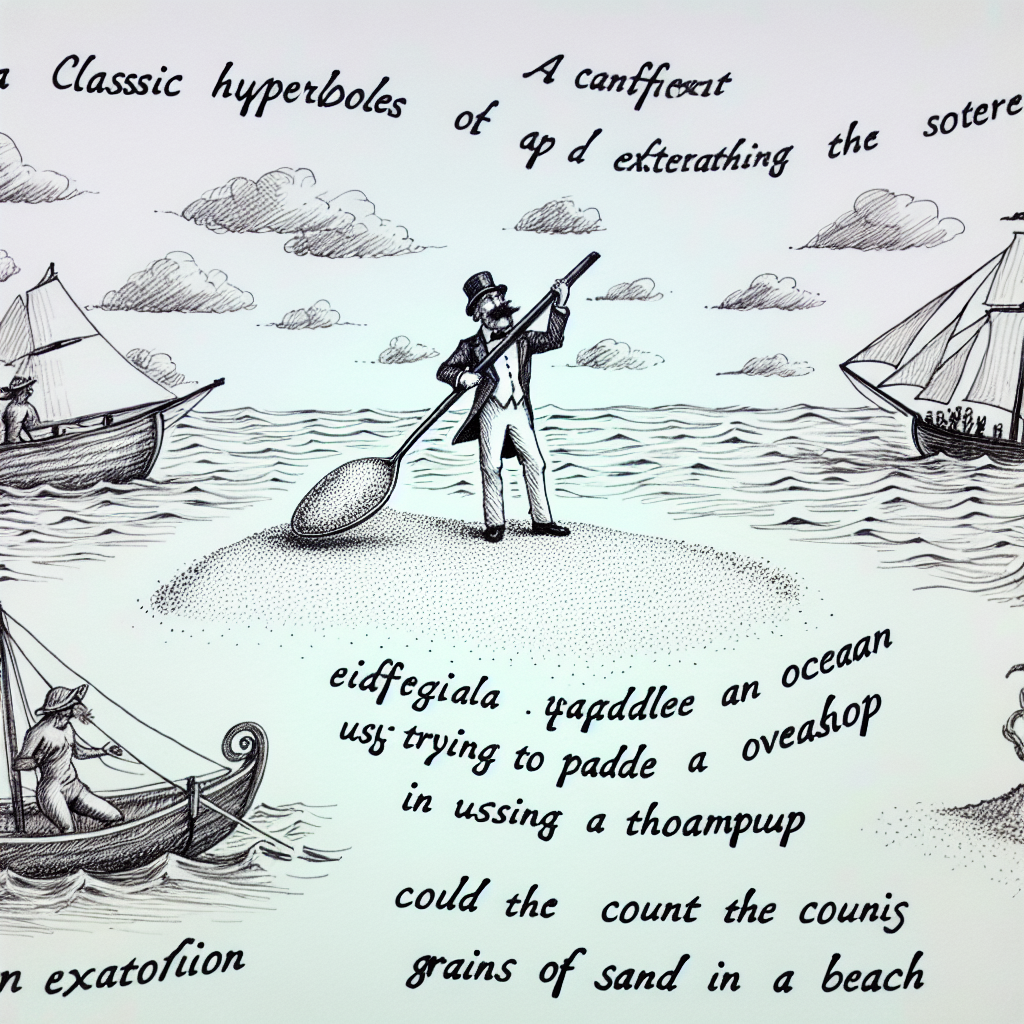 a Classsic hyperboles of
A
ap d exterathing the sotere
eidfegiala . yapddlee an oceaan
trying to padde a oveashop
in ussing a thoampuup
could the count the counis
grains of sand in a beach
n exatofiion